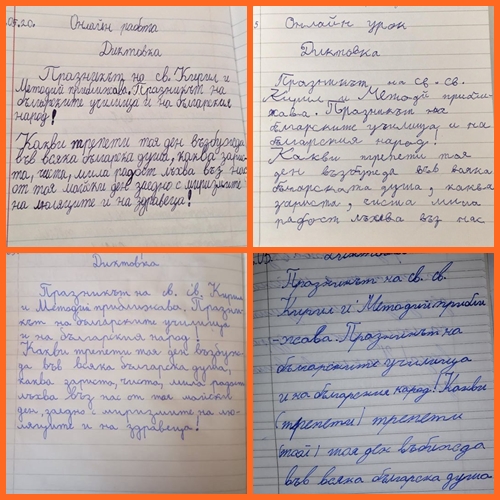 .05.20.
Онлайн работа
Диктовка
Празникът на св. Кирил и
Методий приближава. Празникът на
българските училища и на българския
народ!
Какви трепети тоя ден възбужда
във всяка българска душа, каква зарис-
та, чиста, мила радост лъхва въз нас
от тоя майски ден заедно с миризмите
на люляците и на здравеца!
5.
Онлайн урок
Диктовка
Празникът на св. св.
Кирил и Методи прибли-
жава. Празникът на
българските училища и на
българския народ!
Какви трепети тоя
ден възбужда във всяка
българската душа, каква
зариста, чиста мила
радост лъхва въз нас
Диктовка
Празникът на св. св. Кирил
и Методий приближава. Празни-
кът на българските училища
и на българския народ!
Какви трепети тоя ден възбуж-
да във всяка българска душа,
каква зариста, чиста, мила радост
лъхва въз нас от тоя майски
ден, заедно с миризмите на лю-
ляците и на здравеца!
05.
Диктовка
Празникът на св. св.
Кирил и Методий прибли
-жава. Празникът на
българските училища
и на българския народ! Какви
(трепетти) трепети
(той) тоя ден възбужда
във всяка българска душа